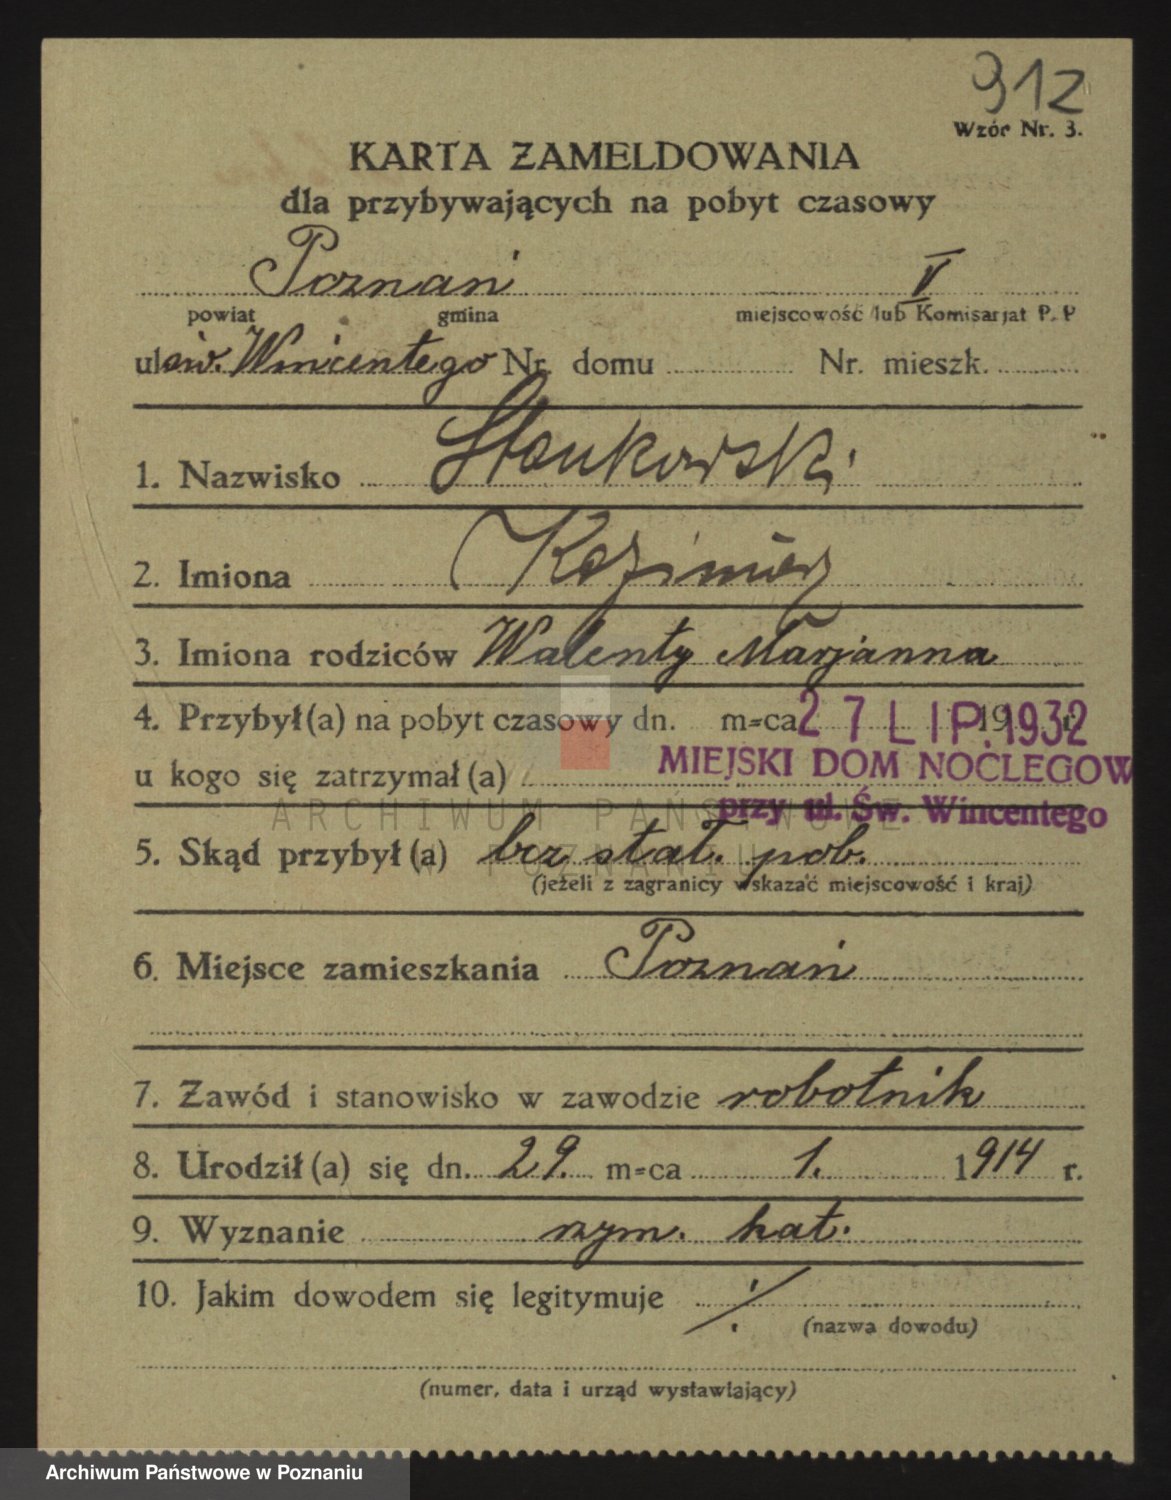 912
Wzór Nr. 3.
KARTA ZAMELDOWANIA
dla przybywających na pobyt czasowy
Poznań V
powiat gmina miejscowość lub Komisarjat P. P
ul. św. Wincentego Nr. domu Nr. mieszk.
1. Nazwisko Stankowski
2. Imiona Kazimierz
3. Imiona rodziców Walenty Marjanna
4. Przybył(a) na pobyt czasowy dn. m-ca 27 LIP. 1932 19 r.
u kogo się zatrzymał(a) MIEJSKI DOM NOCLEGOW
przy ul. Św. Wincentego
ARCHIWUM PAŃSTWOWE
W POZNANIU
5. Skąd przybył(a) bez stat. pob.
(jeżeli z zagranicy wskazać miejscowość i kraj)
6. Miejsce zamieszkania Poznań
7. Zawód i stanowisko w zawodzie robotnik
8. Urodził(a) się dn. 29. m-ca 1. 1914 r.
9. Wyznanie rzym. kat.
10. Jakim dowodem się legitymuje ./.
(nazwa dowodu)
(numer, data i urząd wystawiający)
Archiwum Państwowe w Poznaniu